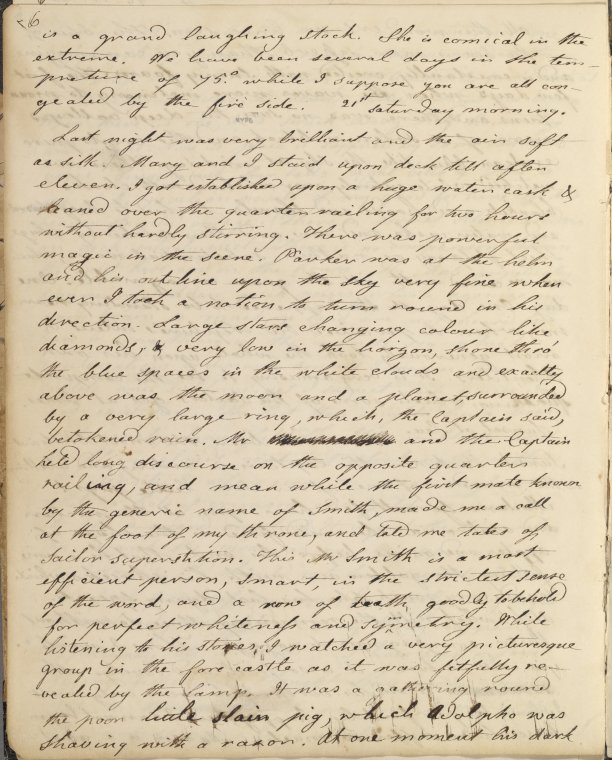 26
is a grand laughing stock. She is comical in the
extreme. We have been several days in the tem-
preture of 75° while I suppose you are all con-
gealed by the fire side. 21st Saturday morning.
Last night was very brilliant and the air soft
as silk. Mary and I staid upon deck till after
eleven. I got established upon a huge water cask &
leaned over the quarter railing for two hours
without hardly stirring. There was powerful
magic in the scene. Parker was at the helm
and his outline upon the sky very fine when
ever I took a notion to turn round in his
direction. Large stars changing colour like
diamonds, & very low in the horizon, shone thro'
the blue spaces in the white clouds and exactly
above was the moon and a planet, surrounded
by a very large ring, which, the Captain said,
betokened rain. Mr and the Captain
held long discourse on the opposite quarter
railing, and mean while the first mate known
by the generic name of Smith, made me a call
at the foot of my throne, and told me tales of
Sailor superstition. This Mr Smith is a most
efficient person, smart, in the strictest sense
of the word, and a row of teeth, goodly to behold
for perfect whiteness and symmetry. While
listening to his stories, I watched a very picturesque
group in the fore castle as it was fitfully re-
vealed by the lamp. It was a gathering round
the poor little slain pig, which Adolpho was
shaving with a razor. At one moment his dark